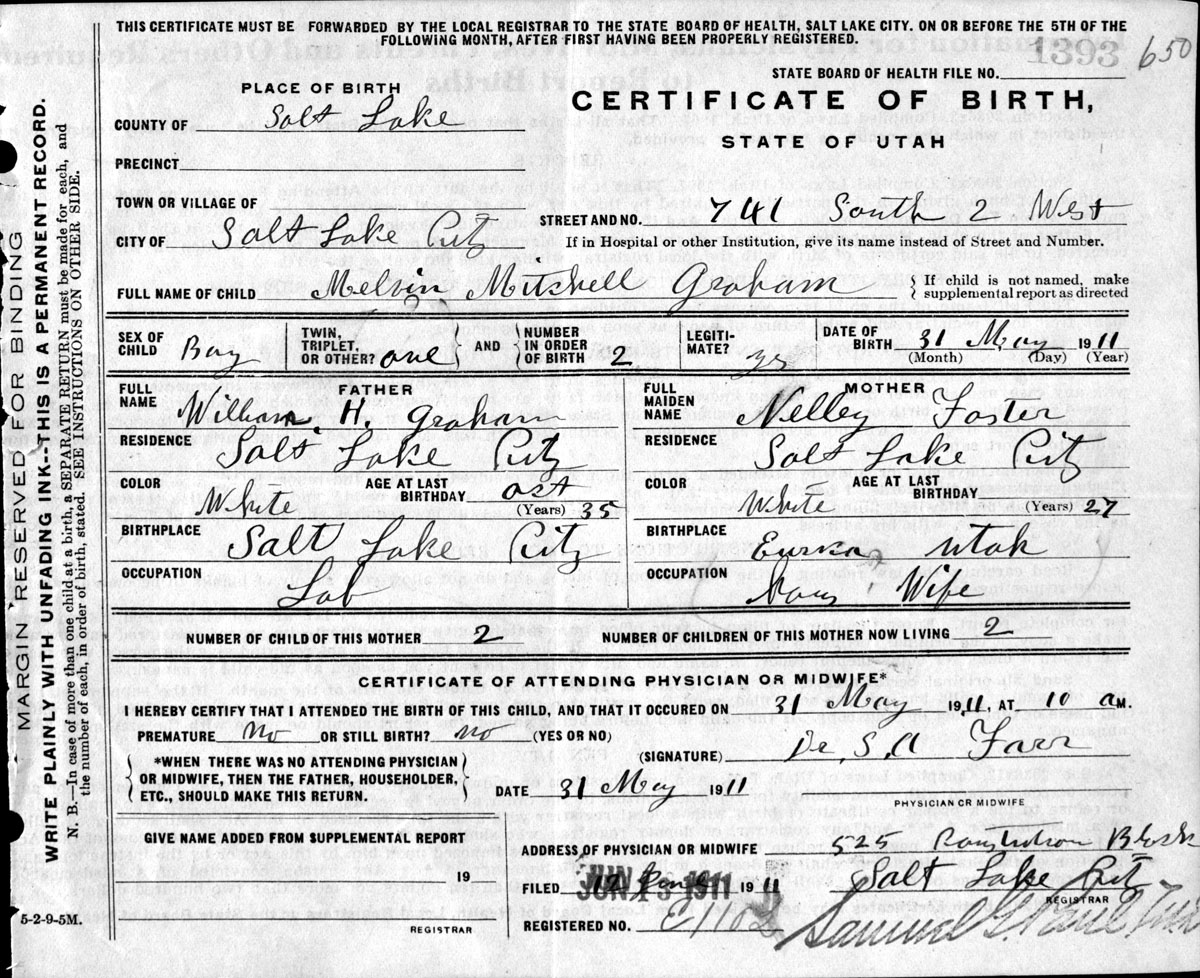 THIS CERTIFICATE MUST BE FORWARDED BY THE LOCAL REGISTRAR TO THE STATE BOARD OF HEALTH, SALT LAKE CITY, ON OR BEFORE THE 5TH OF THE
FOLLOWING MONTH, AFTER FIRST HAVING BEEN PROPERLY REGISTERED.
1393 650
STATE BOARD OF HEALTH FILE NO.
PLACE OF BIRTH
CERTIFICATE OF BIRTH,
COUNTY OF Salt Lake
STATE OF UTAH
PRECINCT
TOWN OR VILLAGE OF
STREET AND NO. 741 South 2 West
CITY OF Salt Lake City
If in Hospital or other Institution, give its name instead of Street and Number.
FULL NAME OF CHILD Melvin Mitchell Graham
If child is not named, make
supplemental report as directed
SEX OF CHILD Boy
TWIN, TRIPLET, OR OTHER? one
AND NUMBER IN ORDER OF BIRTH 2
LEGITI-MATE? yes
DATE OF BIRTH 31 May 1911
(Month) (Day) (Year)
FATHER
FULL NAME William H. Graham
RESIDENCE Salt Lake City
COLOR White AGE AT LAST BIRTHDAY (Years) 35
BIRTHPLACE Salt Lake City
OCCUPATION Lab
MOTHER
FULL MAIDEN NAME Nelley Foster
RESIDENCE Salt Lake City
COLOR White AGE AT LAST BIRTHDAY (Years) 27
BIRTHPLACE Eurka Utah
OCCUPATION Hous Wife
NUMBER OF CHILD OF THIS MOTHER 2 NUMBER OF CHILDREN OF THIS MOTHER NOW LIVING 2
CERTIFICATE OF ATTENDING PHYSICIAN OR MIDWIFE*
I HEREBY CERTIFY THAT I ATTENDED THE BIRTH OF THIS CHILD, AND THAT IT OCCURED ON 31 May 1911, AT 10 a M.
PREMATURE No OR STILL BIRTH? no (YES OR NO)
(SIGNATURE) Farr
*WHEN THERE WAS NO ATTENDING PHYSICIAN
OR MIDWIFE, THEN THE FATHER, HOUSEHOLDER,
ETC., SHOULD MAKE THIS RETURN.
DATE 31 May 1911
PHYSICIAN OR MIDWIFE
GIVE NAME ADDED FROM SUPPLEMENTAL REPORT
19
REGISTRAR
ADDRESS OF PHYSICIAN OR MIDWIFE 525 Block
Salt Lake City
FILED JUN 13 1911 1911
REGISTRAR
REGISTERED NO.
Samuel G. Paul
5-2-9-5M.
MARGIN RESERVED FOR BINDING
WRITE PLAINLY WITH UNFADING INK--THIS IS A PERMANENT RECORD.
N. B.—In case of more than one child at a birth, a SEPARATE RETURN must be made for each, and
the number of each, in order of birth, stated. SEE INSTRUCTIONS ON OTHER SIDE.